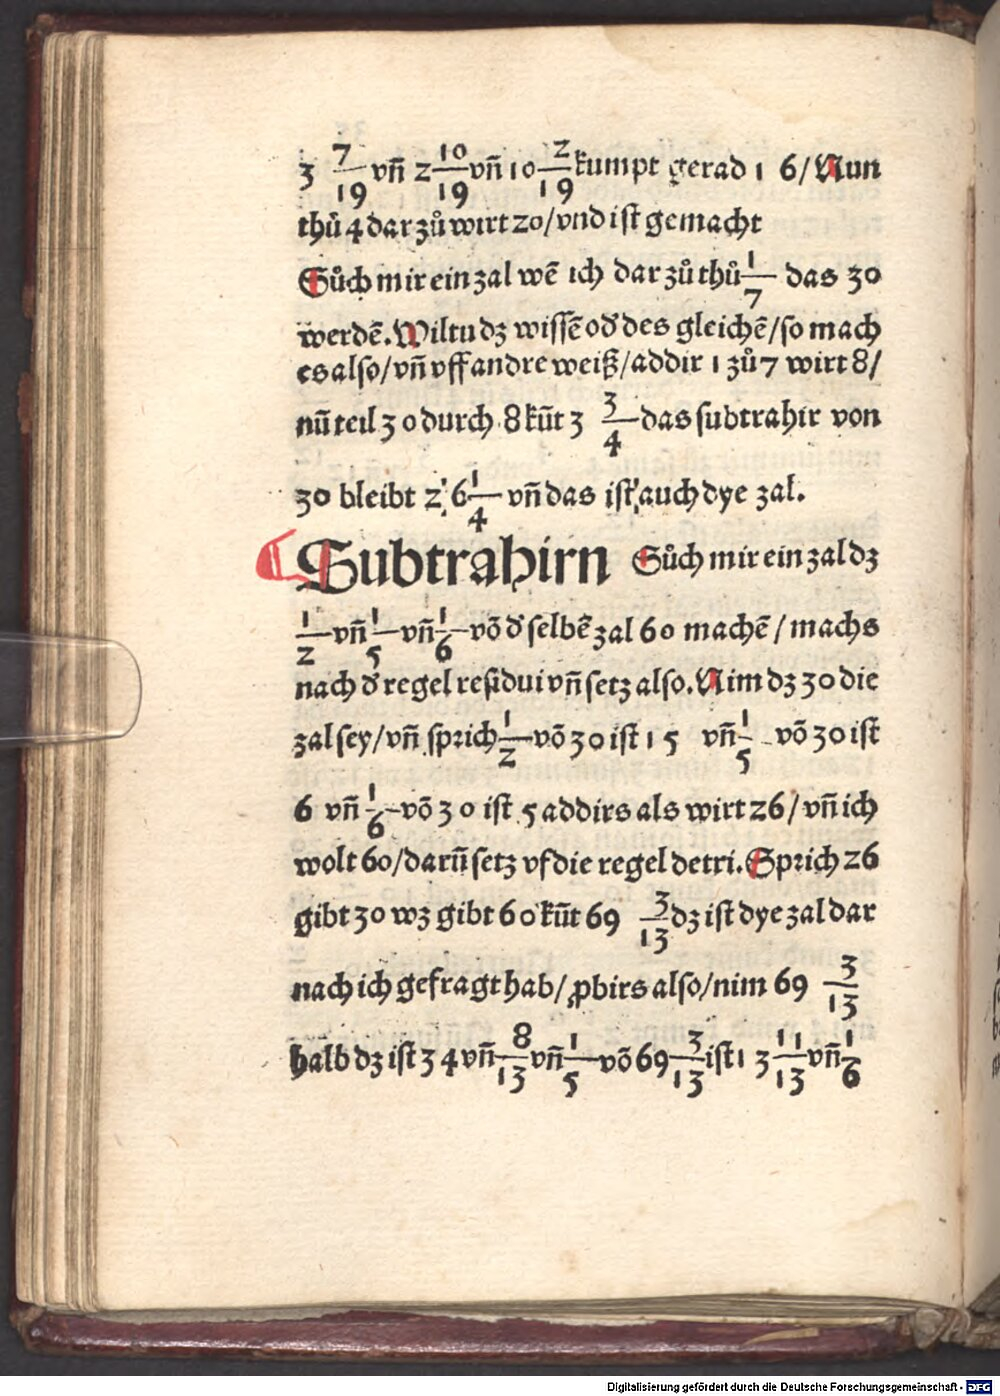 3 7/19 vn̄ 2 10/19 vn̄ 10 2/19 kumpt gerad 1 6/ Nun
thuͦ 4 dar zuͦ wirt 20/ vnd ist gemacht
Suͦch mir ein zal wē ich dar zuͦ thuͦ 1/7 das 30
werdē. Wiltu dz wissē od̓ des gleichē/ so mach
es also/ vn̄ vff andre weiß/ addir 1 zuͦ 7 wirt 8/
nū teil 30 durch 8 kūt 3 3/4 das subtrahir von
30 bleibt 2 6 1/4 vn̄ das ist auch dye zal.
Subtrahirn Suͦch mir ein zal dz
1/2 vn̄ 1/5 vn̄ 1/6 vō d̓ selbē zal 60 machē / machs
nach d̓ regel residui vn̄ setz also. Nim dz 30 die
zal sey/ vn̄ sprich 1/2 vō 30 ist 15 vn̄ 1/5 vō 30 ist
6 vn̄ 1/6 vō 30 ist 5 addirs als wirt 26/ vn̄ ich
wolt 60/ darū setz vf die regel detri. Sprich 26
gibt 30 wz gibt 60 kūt 69 3/13 dz ist dye zal dar
nach ich gefragt hab/ ꝓbirs also/ nim 69 3/13
halb dz ist 34 vn̄ 8/13 vn̄ 1/5 vō 69 3/13 ist 1 3 11/13 vn̄ 1/6
Digitalisierung gefördert durch die Deutsche Forschungsgemeinschaft - DFG